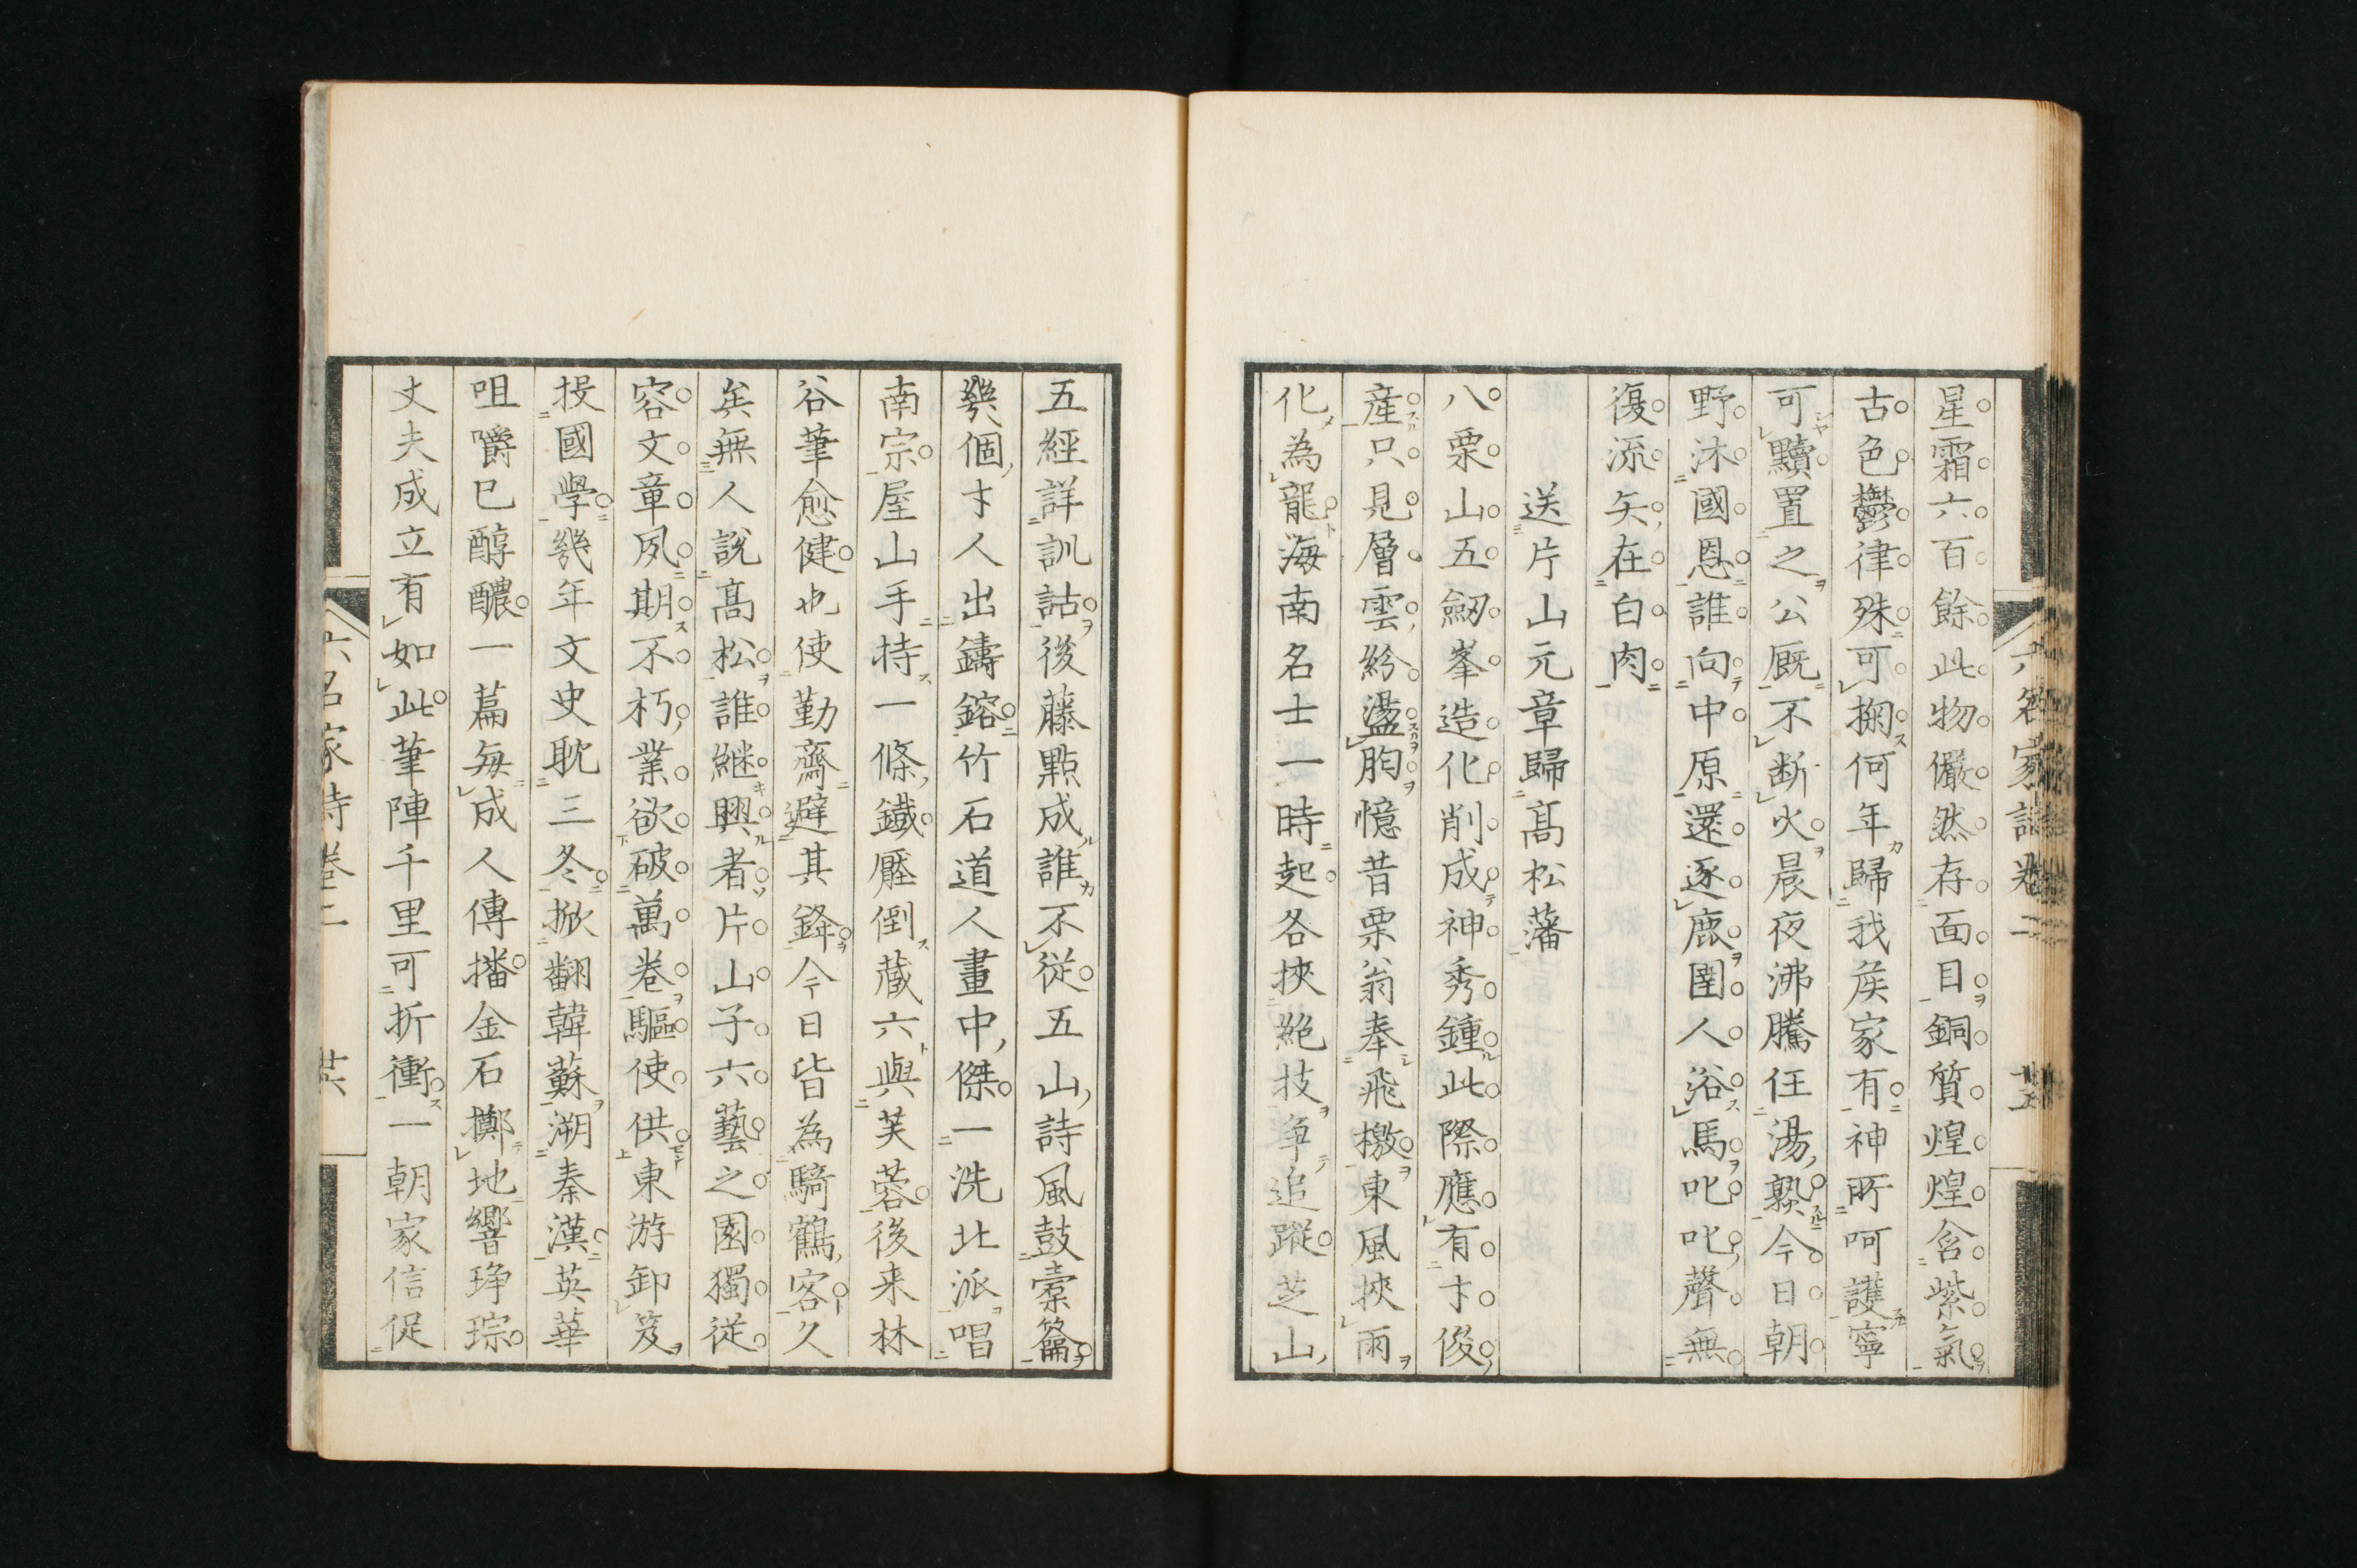 星霜六百餘此物儼然存面目銅質煌煌含紫氣
古色鬱律殊可掬何年歸我矦家有神所呵護寧
可黷置之公厩不断火晨夜沸騰任湯爇今日朝
野沐國恩誰向中原還逐鹿圉人浴馬叱叱聲無
復流矢在白肉
送片山元章歸髙松藩
八栗山五劒峯造化削成神秀鍾此際應有才俊
産只見層雲紛盪胸憶昔栗翁奉飛檄東風挾雨
化為龍海南名士一時起各挾絶技争追蹤芝山
五經詳訓詁後藤㸃成誰不従五山詩風鼓橐籥
幾個才人出鑄鎔竹石道人畫中傑一洗北派唱
南宗屋山手持一條鐵壓倒藏六與芙蓉後来林
谷筆愈健也使勤齋避其鋒今日皆為騎鶴客久
矣無人說髙松誰継興者片山子六藝之園獨従
容文章夙期不朽業欲破萬卷驅使供東游卸笈
投國學幾年文史耽三冬掀翻韓蘇溯秦漢英華
咀嚼已醇醲一篇每成人傳播金石擲地響琤琮
丈夫成立有如此筆陣千里可折衝一朝家信促
六名家詩卷二
廿六